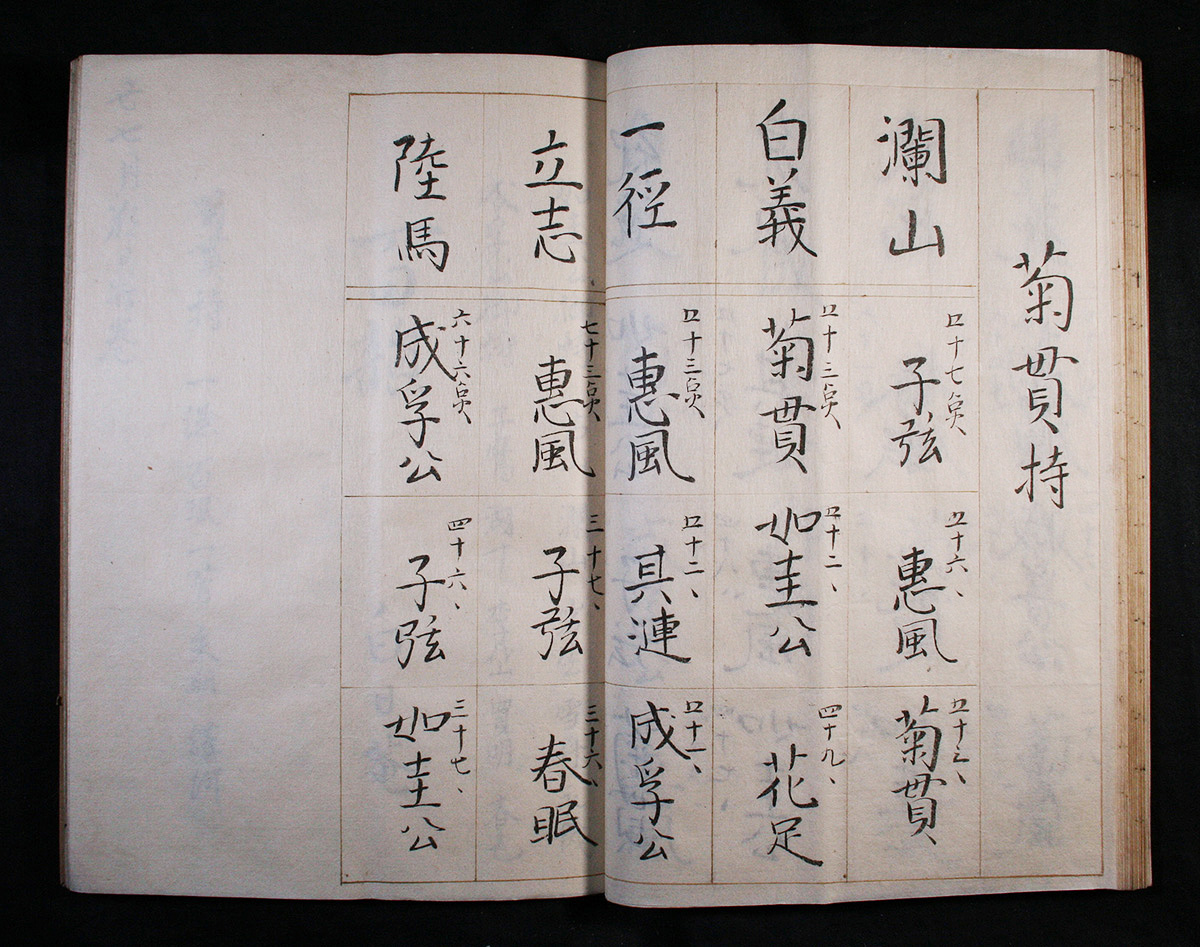 菊貫持
瀾山
五十七点、
子弦
五十六、
惠風
五十三、
菊貫
白義
五十三点、
菊貫
五十二、
如圭公
四十九、
花足
一徑
五十三点、
惠風
五十二、
其漣
五十一、
成孚公
立志
七十三点、
惠風
三十七、
子弦
三十六、
春眠
陸馬
六十六点、
成孚公
四十六、
子弦
三十七、
如圭公